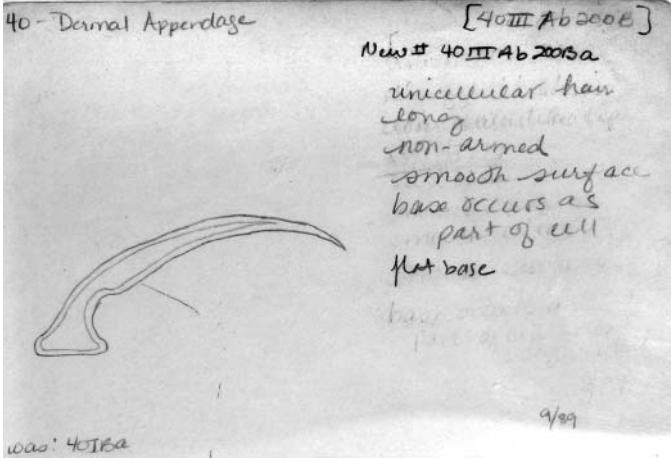 40 - Dermal Appendage
[40III Ab 200B]
New # 40III Ab 200Ba
unicellular hair
long
non-armed
smooth surface
base occurs as
part of cell
flat base
9/89
was: 40IBa